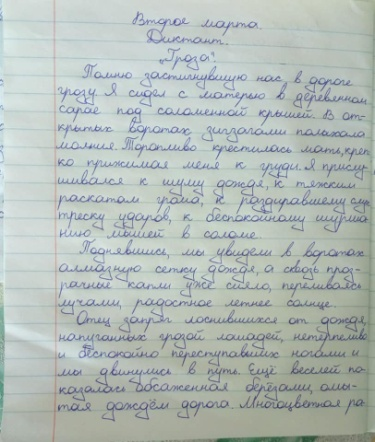 Второе марта.
Диктант.
„Гроза".
Помню застигнувшую нас, в дороге
грозу. Я сидел с матерью в деревянном
сарае под соломенной крышей. В от-
крытых воротах зигзагами полыхала
молния. Торопливо крестилась мать, креп-
ко прижимая меня к груди. Я прислу-
шивался к шуму дождя, к тяжким
раскатам грома, к раздиравшему слух
треску ударов, к беспокойному шурша-
нию мышей в соломе.
Поднявшись, мы увидели в воротах
алмазную сетку дождя, а сквозь проз-
рачные капли уже сияло, переливаясь
лучами, радостное летнее солнце.
Отец запряг лоснившихся от дождя,
напуганных грозой лошадей, нетерпеливо
и беспокойно переступавших ногами и
мы двинулись в путь. Ещё веселей по-
казалась обсаженная берёзами, омы-
тая дождём дорога. Многоцветная ра-